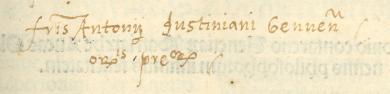 fris Antonij Justiniani Genuen̄
orⁱˢ preꝝ